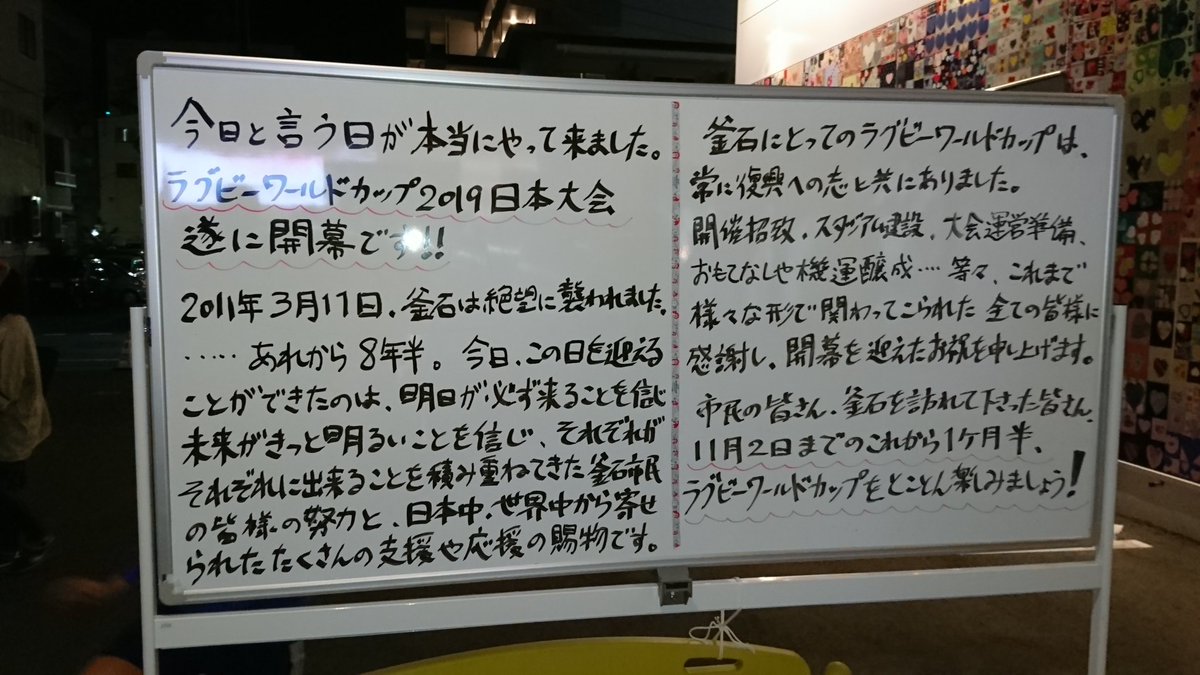 今日と言う日が本当にやって来ました。
ラグビーワールドカップ2019日本大会
遂に開幕です!!
2011年3月11日、釜石は絶望に襲われました。
…… あれから8年半。今日、この日を迎える
ことができたのは、明日が必ず来ることを信じ
未来がきっと明るいことを信じ、それぞれが
それぞれに出来ることを積み重ねてきた釜石市民
の皆様の努力と、日本中、世界中から寄せ
られたたくさんの支援や応援の賜物です。
釜石にとってのラグビーワールドカップは、
常に復興への志と共にありました。
開催招致、スタジアム建設、大会運営準備、
おもてなしや機運醸成…. 等々、これまで
様々な形で関わってこられた全ての皆様に
感謝し、開幕を迎えたお祝を申し上げます。
市民の皆さん、釜石を訪れて下さった皆さん、
11月2日までのこれから1ヶ月半、
ラグビーワールドカップをとことん楽しみましょう!